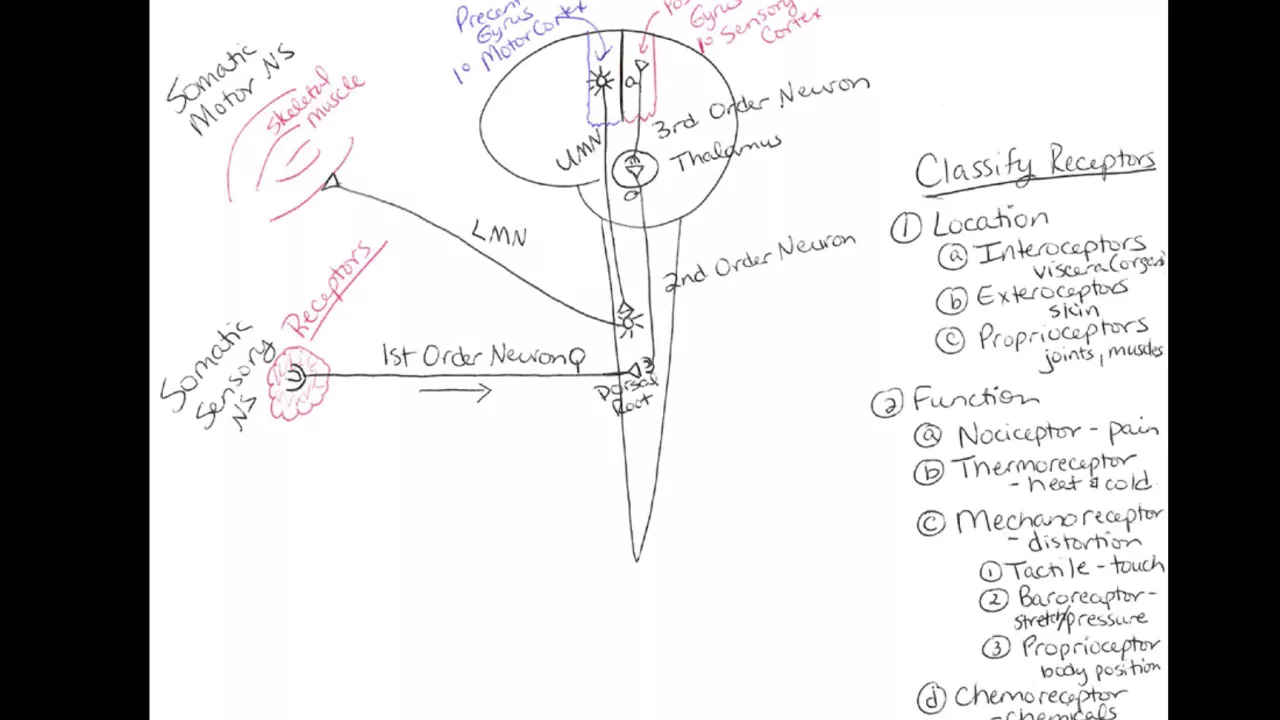 Precen
Gyrus
1° Motor Cortex
Pos
Gyrus
1° Sensory
Cortex
Somatic
Motor NS
Skeletal
muscle
UMN
3rd Order Neuron
Thalamus
LMN
2nd Order Neuron
Receptors
Somatic
Sensory
NS
1st Order Neuron
Dorsal
Root
Classify Receptors
1 Location
a Interoceptors
viscera (organs)
b Exteroceptors
skin
c Proprioceptors
joints, muscles
2 Function
a Nociceptor - pain
b Thermoreceptor
- heat & cold
c Mechanoreceptor
- distortion
1 Tactile - touch
2 Baroreceptor -
stretch/pressure
3 Proprioceptor
body position
d Chemoreceptor
- chemicals